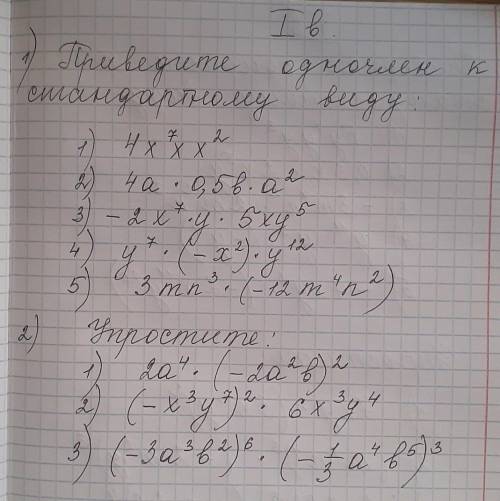 I в.
1) Приведите одночлен к
стандартному виду:
1) 4x⁷x x²
2) 4a · 0,5в · a²
3) -2x⁷ · y · 5xy⁵
4) y⁷ · (-x²) · y¹²
5) 3mn³ · (-12m⁴n²)
2) Упростите:
1) 2a⁴ · (-2a²в)²
2) (-x³y⁷)² · 6x³y⁴
3) (-3a³в²)⁶ · (-1/3 a⁴в⁵)³